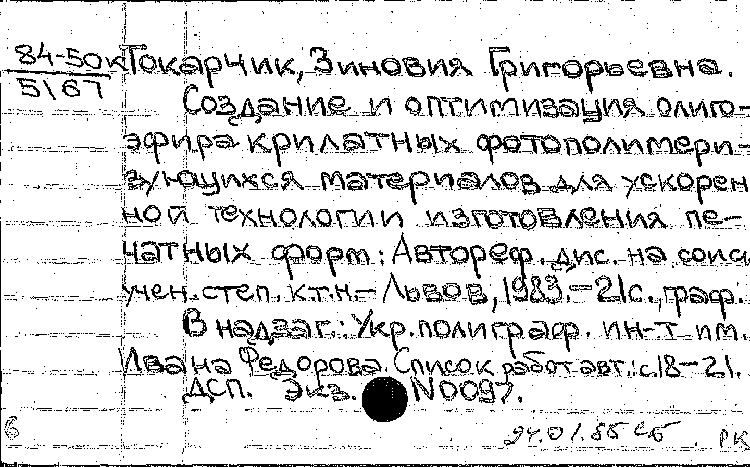 84-50к Токарчик, Зиновия Григорьевна.
5167
Создание и оптимизация олиго-
эфиракрилатных фотополимери-
зующихся материалов для ускорен
ной технологии изготовления пе-
чатных форм: Автореф. дис. на соиск
учен. степ. к.т.н.- Львов, 1983.-21с., граф.
В надзаг.: Укр. полиграф. ин-т им.
Ивана Федорова. Список работ авт.: с.18-21.
ДСП. Экз. N0097.
6
24.01.85 РК